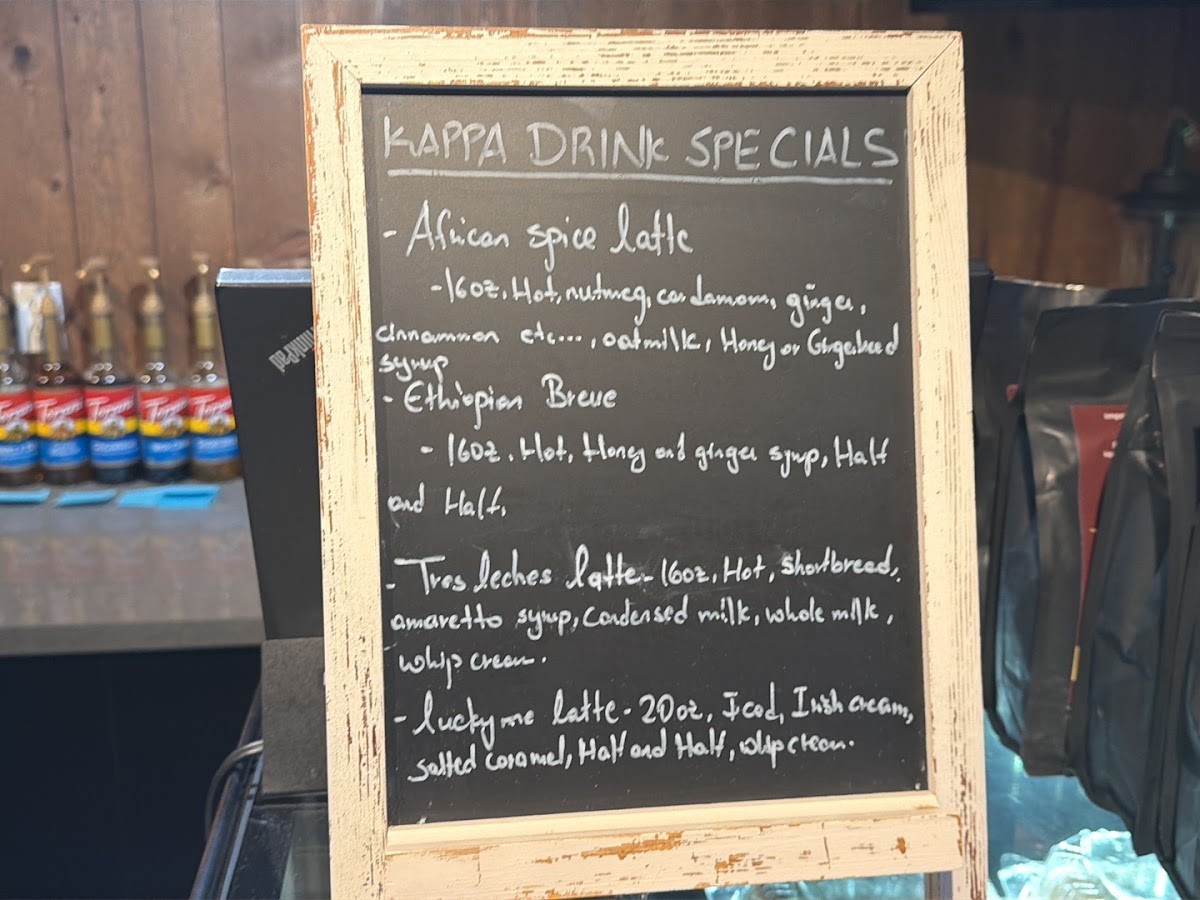 KAPPA DRINK SPECIALS
- African spice latte
-16oz, Hot, nutmeg, cardamom, ginger,
cinnammon etc..., oatmilk, Honey or Gingerbread
syrup
- Ethiopian Breve
- 16oz, Hot, Honey and ginger syrup, Half
and Half,
- Tres leches latte- 16oz, Hot, Shortbread,
amaretto syrup, Condensed milk, whole milk,
whip cream.
- lucky me latte- 20oz, Iced, Irish cream,
salted caramel, Half and Half, whip cream.
Torani
Torani
Torani
Torani
Torani